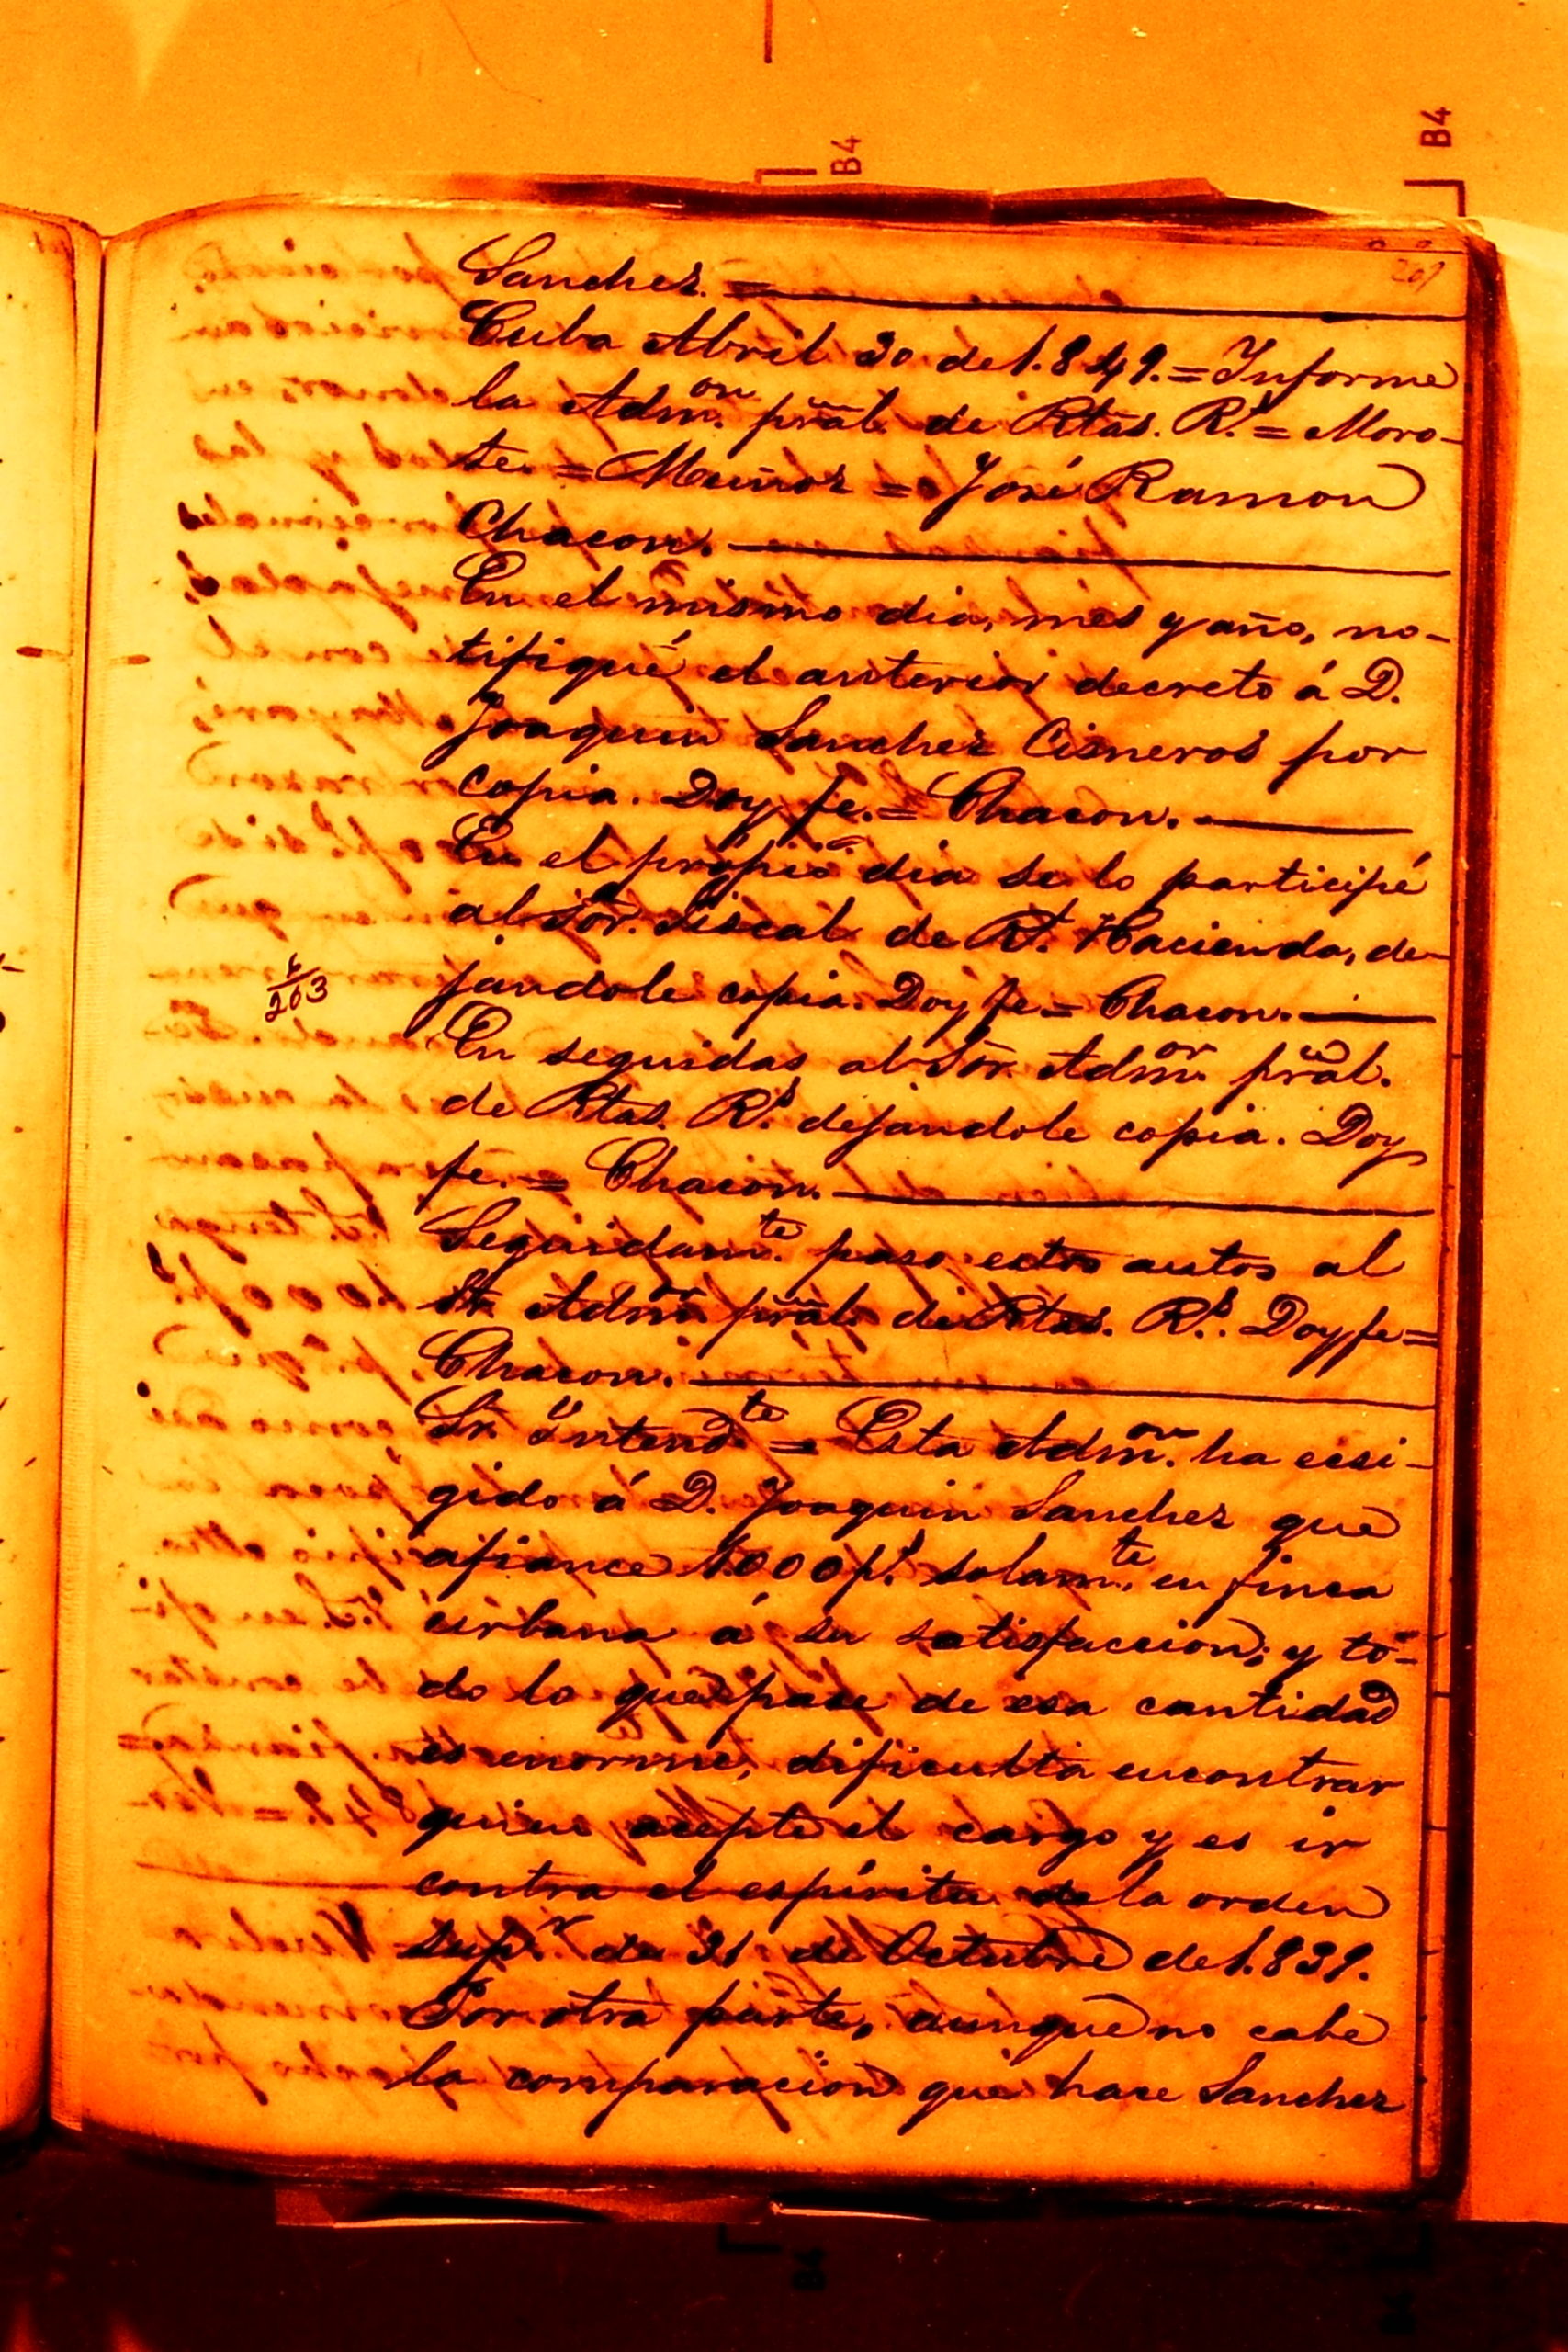 B4
B4
201
Sanchez. =
Cuba Abril 30 de 1.849. = Informe
la Adm.on pral. de Rtas. R.s = Moro-
te. = Muñoz = José Ramon
Chacon.
En el mismo dia, mes y año, no-
tifiqué el anterior decreto á D.
Joaquin Sanchez Cisneros por
copia. Doy fe. = Chacon.
En el propio dia se lo participé
al Sor. Fiscal de Rl. Hacienda, de-
jandole copia. Doy fe = Chacon.
6/203
En seguidas al Sor. Adm.or pral.
de Rtas. R.s dejandole copia. Doy
fe. = Chacon.
Seguidam.te paso estos autos al
Sr. Adm.or pral. de Rtas. R.s. Doy fe =
Chacon.
Sr. Intend.te = Esta Adm.on ha ecsi-
gido á D. Joaquin Sanchez que
afiance 1.000 p.s solam.te en finca
urbana á su satisfaccion; y to-
do lo que pase de esa cantidad
es enorme, dificulta encontrar
quien acepte el cargo y es ir
contra el espíritu de la orden
sup.r de 31 de Octubre de 1.839.
Por otra parte, aunque no cabe
la comparacion que hace Sanchez
B4